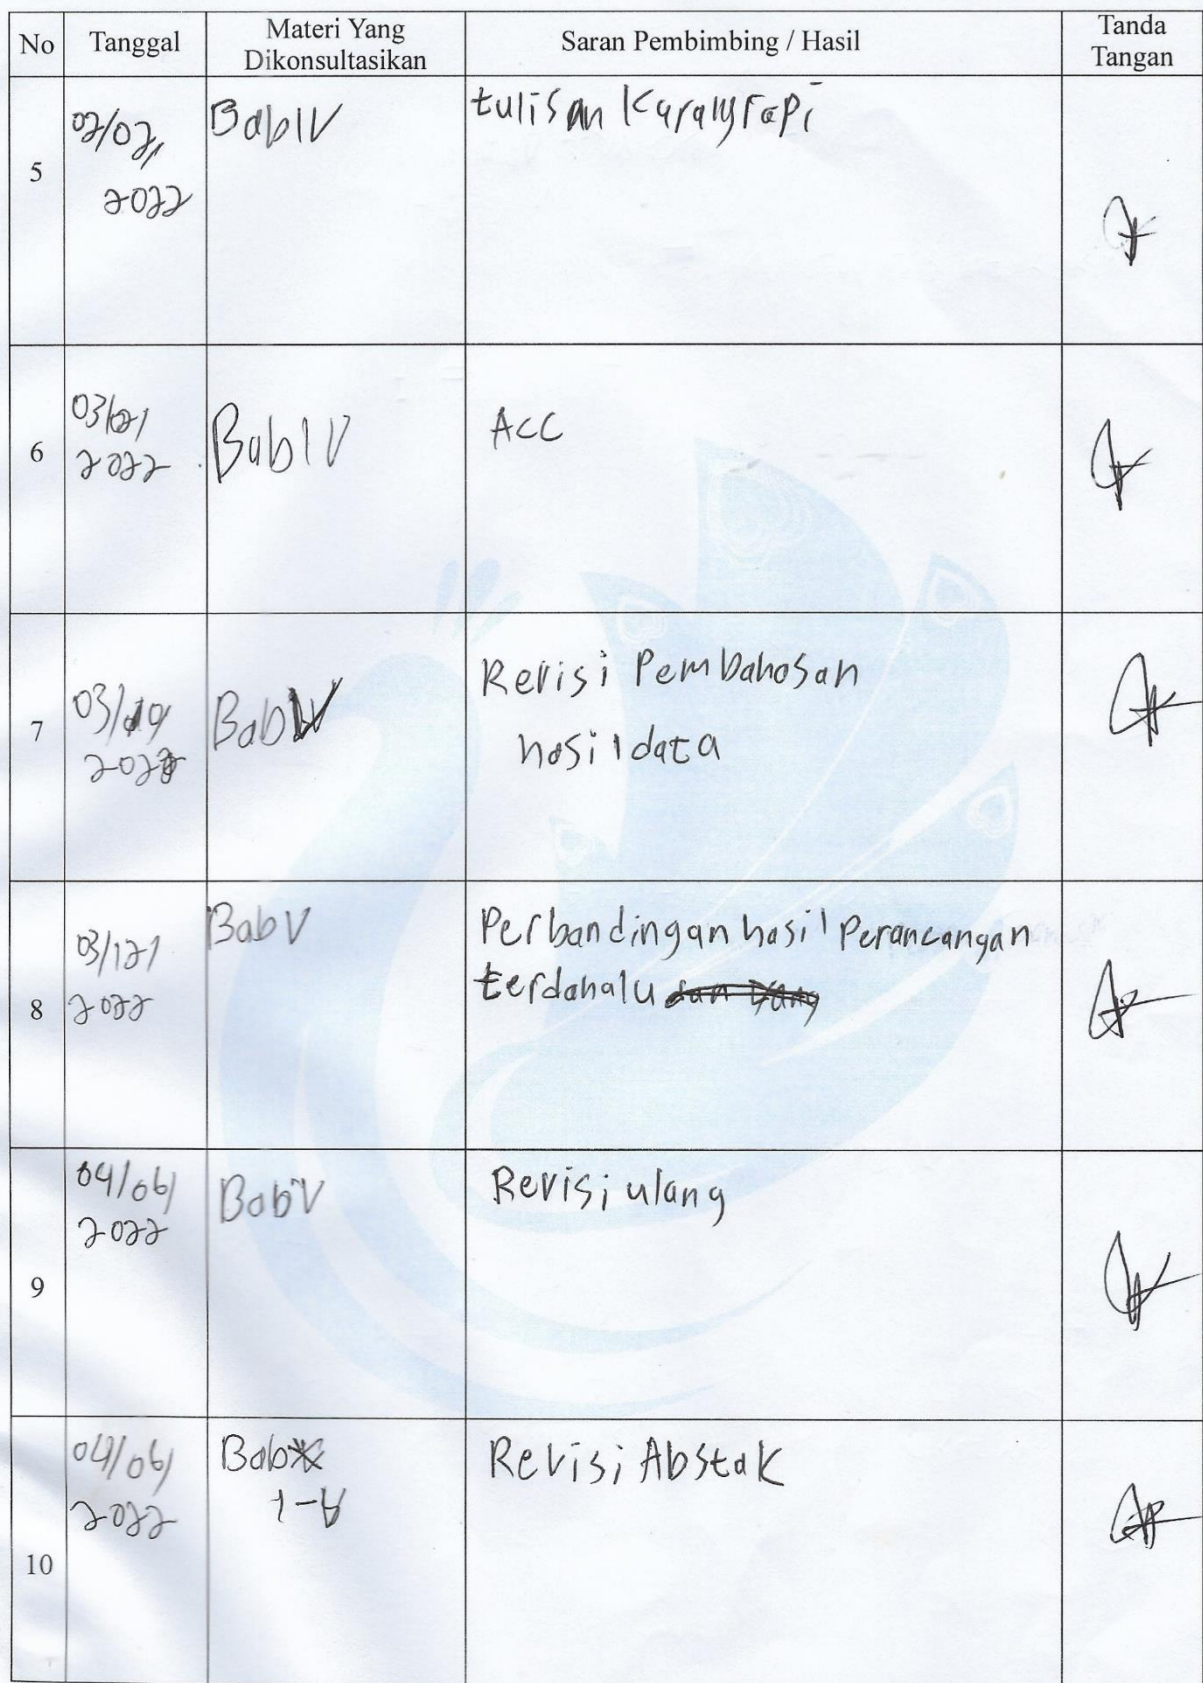 No Tanggal Materi Yang Dikonsultasikan Saran Pembimbing / Hasil Tanda Tangan
5 02/02/ 2022 Bab IV tulisan Kurang rapi
6 2022 Bab IV ACC
7 2022 Bab Revisi Pembahasan
hasil data
8 03/12/ 2022 Bab V Perbandingan hasil Perancangan
terdahalu
9 04/06/ 2022 Bab V Revisi ulang
10 04/06/ 2022 Bab Revisi Abstak